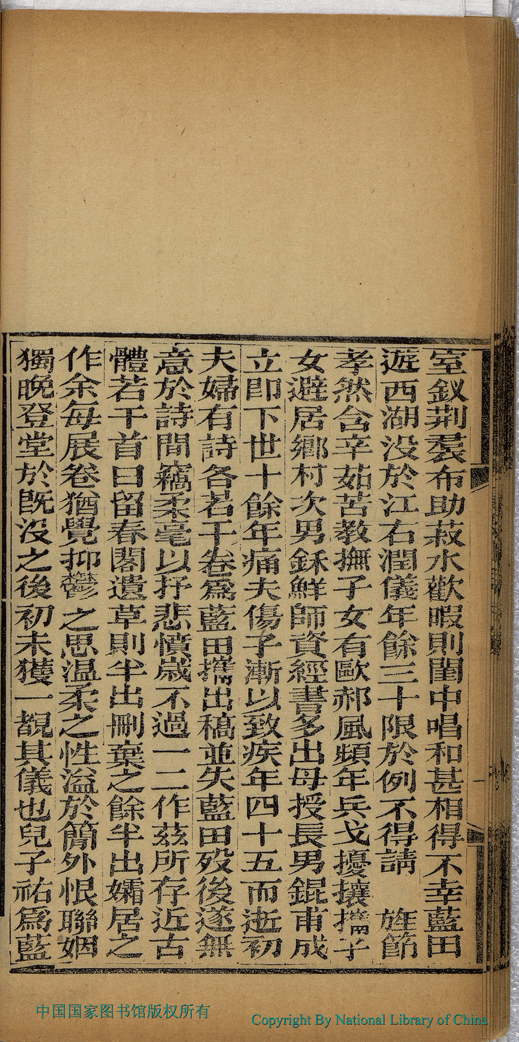 室釵荆裠布助菽水歡暇則閨中唱和甚相得不幸藍田
遊西湖没於江右潤儀年餘三十限於例不得請 旌節
孝然含辛茹苦教撫子女有歐郝風頻年兵戈擾攘攜子
女避居鄉村次男鉌鮮師資經書多出母授長男錕甫成
立即下世十餘年痛夫傷子漸以致疾年四十五而逝初
夫婦有詩各若干卷爲藍田攜出稿並失藍田歿後遂無
意於詩間竊柔毫以抒悲憤歲不過一二作茲所存近古
體若干首曰留春閣遺草則半出刪棄之餘半出孀居之
作余每展卷猶覺抑鬱之思温柔之性溢於簡外恨聯姻
獨晚登堂於旣没之後初未獲一覩其儀也兒子祐爲藍
中国国家图书馆版权所有
Copyright By National Library of China